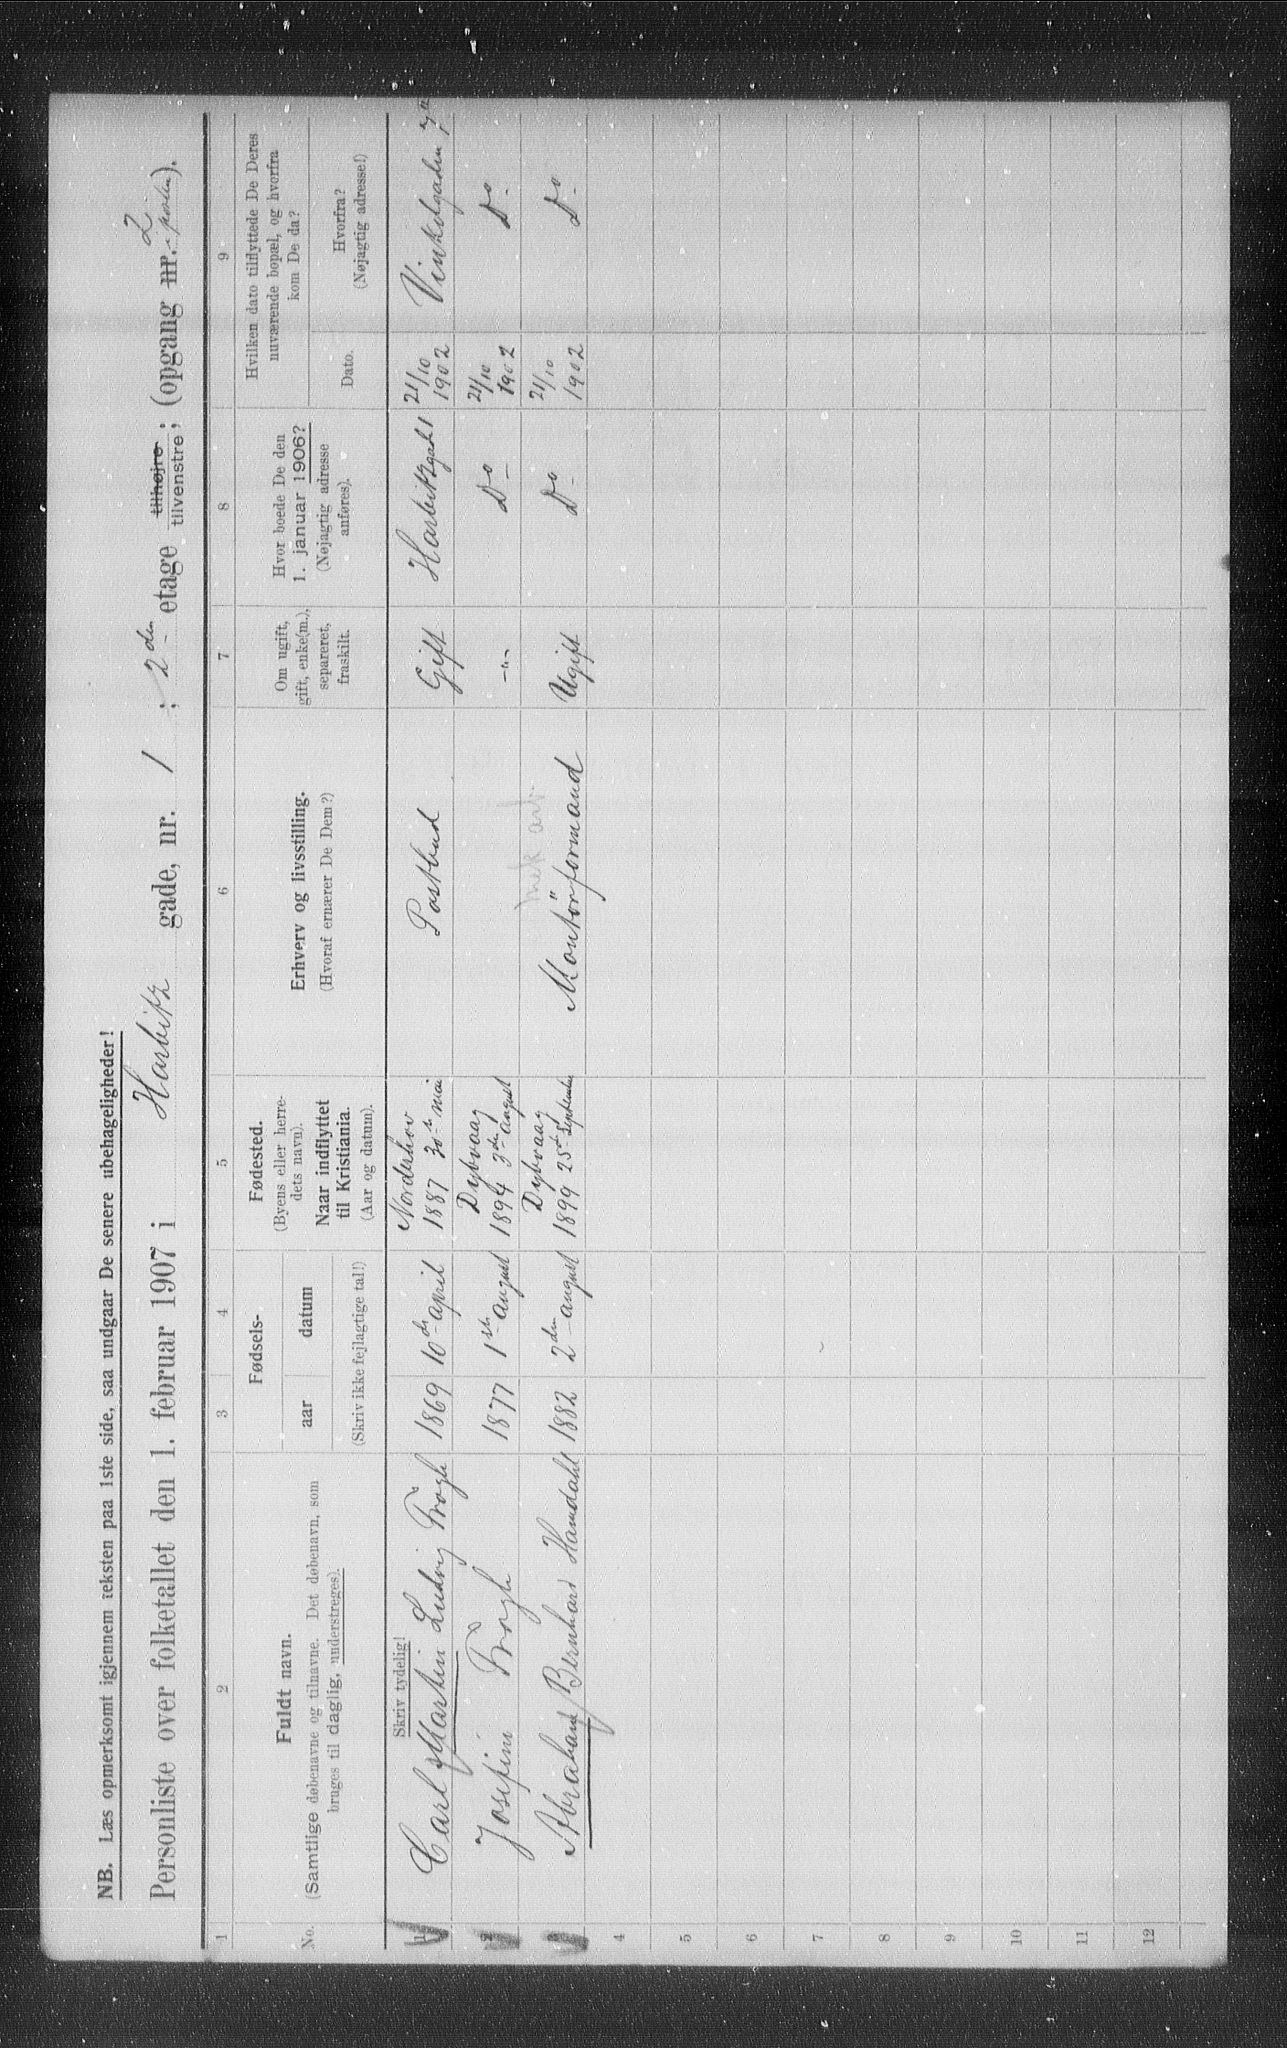 NB. Læs opmerksomt igjennem teksten paa 1ste side, saa undgaar De senere ubehageligheder!
Personliste over folketallet den 1. februar 1907 i Harbitz gade, nr. 1 ; 2den etage tilhøjre tilvenstre; (opgang nr. 2
1 2 3 4 5 6 7 8 9
No.
Fuldt navn.
(Samtlige døbenavne og tilnavne. Det døbenavn, som
bruges til daglig, understreges).
Fødsels-
aar datum
(Skriv ikke fejlagtige tal!)
Fødested.
(Byens eller herre-
dets navn).
Naar indflyttet
til Kristiania.
(Aar og datum).
Erhverv og livsstilling.
(Hvoraf ernærer De Dem?)
Om ugift,
gift, enke(m.),
separeret,
fraskilt.
Hvor boede De den
1. januar 1906?
(Nøjagtig adresse
anføres).
Hvilken dato tilflyttede De Deres
nuværende bopæl, og hvorfra
kom De da?
Dato.
Hvorfra?
(Nøjagtig adresse!)
Skriv tydelig!
1 Carl Martin Ludvig Trogh 1869 10de april Norderhov 1887 30te mai Postbud Gift Harbitzgad 1 21/10 1902 Vinkelgaden
2 Josefine Trogh 1877 1ste august Dybvaag 1894 3die august -"- Do - 21/10 1902 Do -
mek arb.
3 Abraham Bernhard Hamdahl 1882 2den august Dybvaag 1899 25de September Montörformand Ugift Do - 21/10 1902 Do -
4
5
6
7
8
9
10
11
12